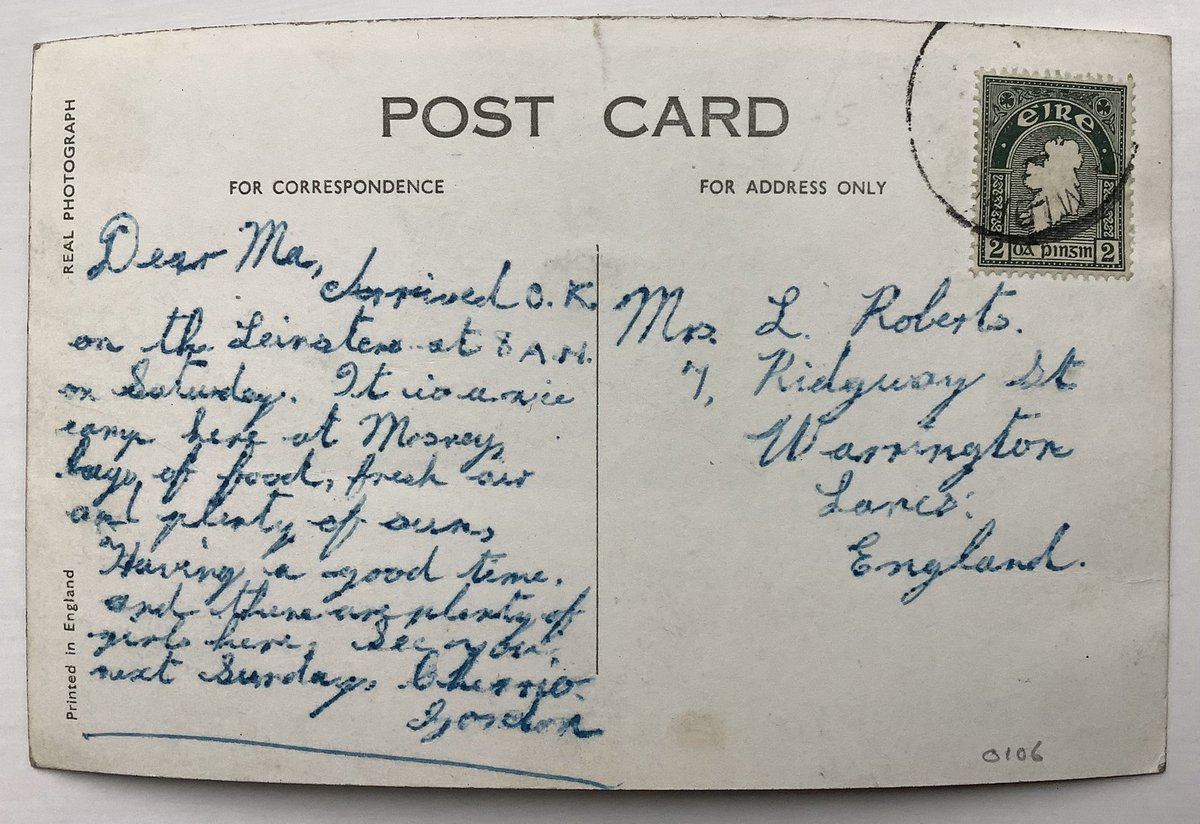 POST CARD
FOR CORRESPONDENCE
FOR ADDRESS ONLY
REAL PHOTOGRAPH
Printed in England
Dear Ma,
Arrived O.K.
on the Leinster at 8 A.M.
on Saturday. It is a nice
camp here at Mosney,
bags of food, fresh air
and plenty of sun,
Having a good time.
and there are plenty of
girls here, See you,
next Sunday, Cherrio.
Gordon
Mrs. L. Roberts.
7, Ridgway St
Warrington
Lancs:
England.
EIRE
2 DÁ PINGIN 2
0106